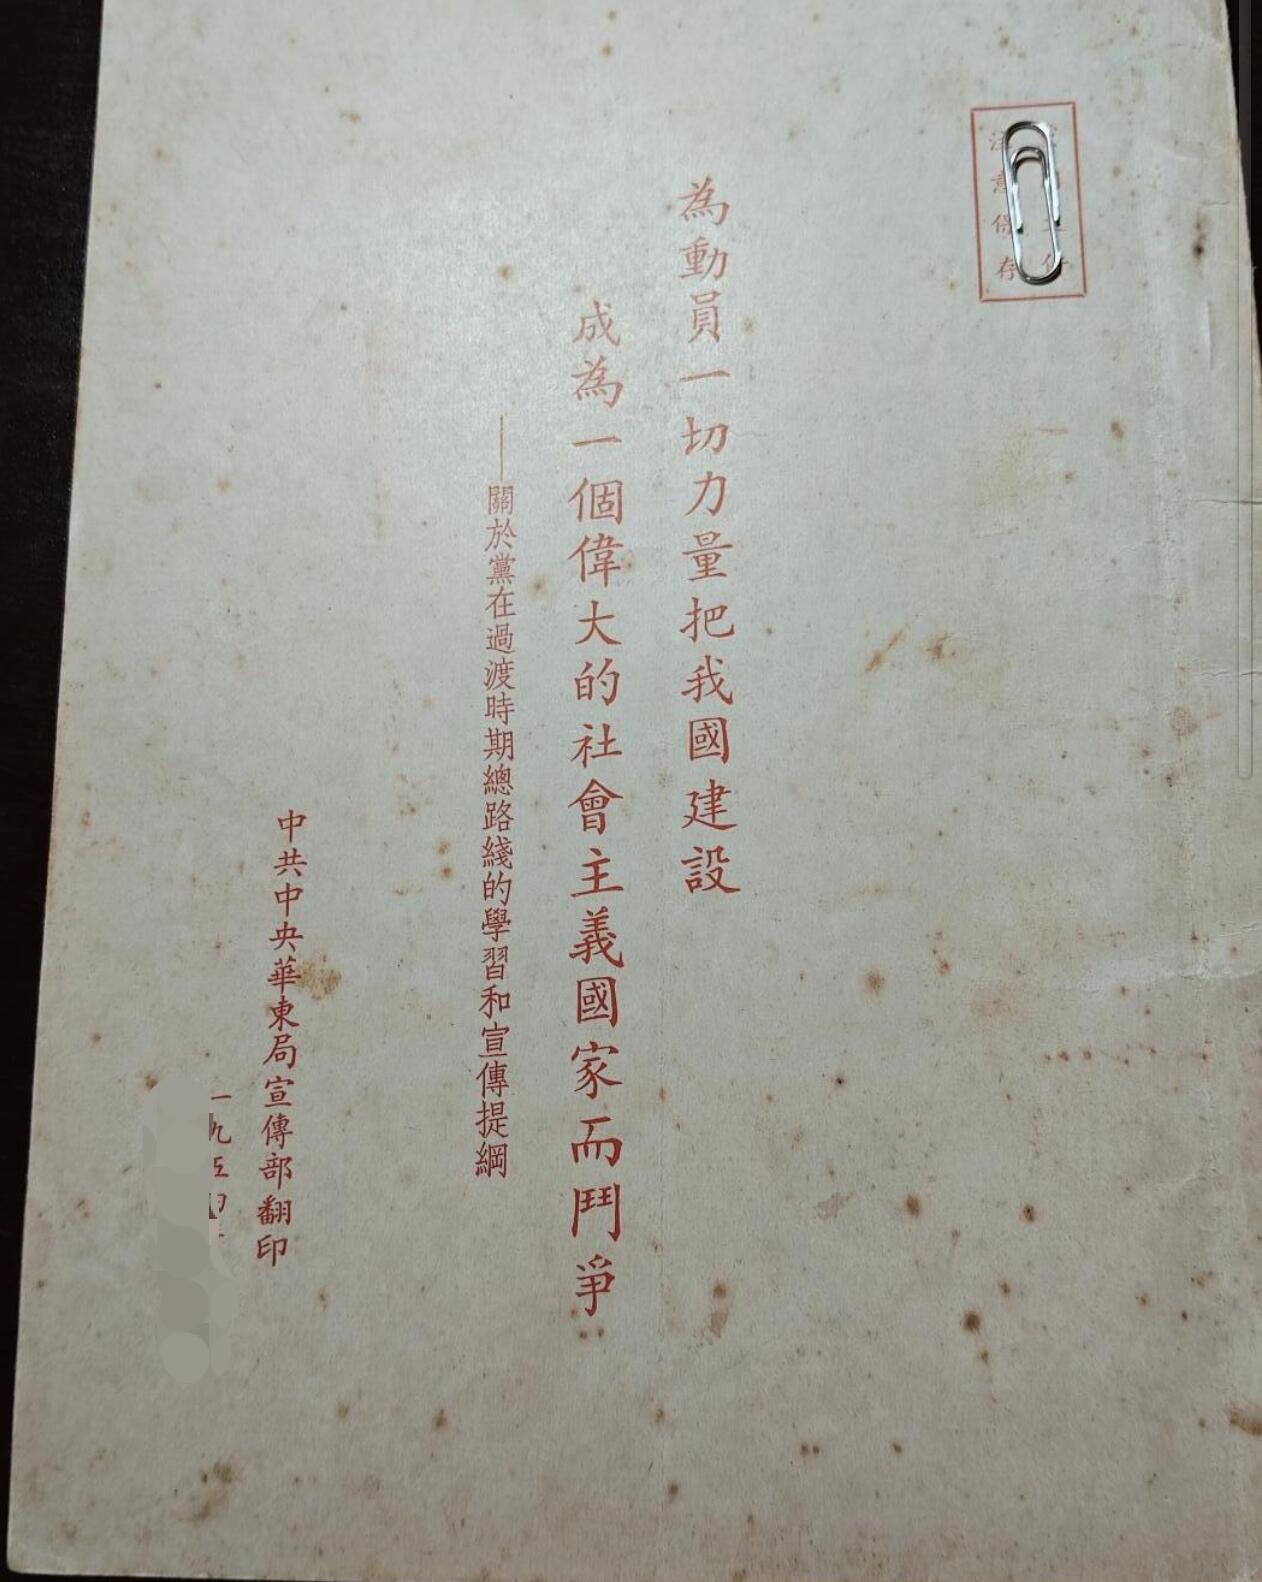 注意保存
為動員一切力量把我國建設
成為一個偉大的社會主義國家而鬥爭
——關於黨在過渡時期總路綫的學習和宣傳提綱
中共中央華東局宣傳部翻印
一九五四